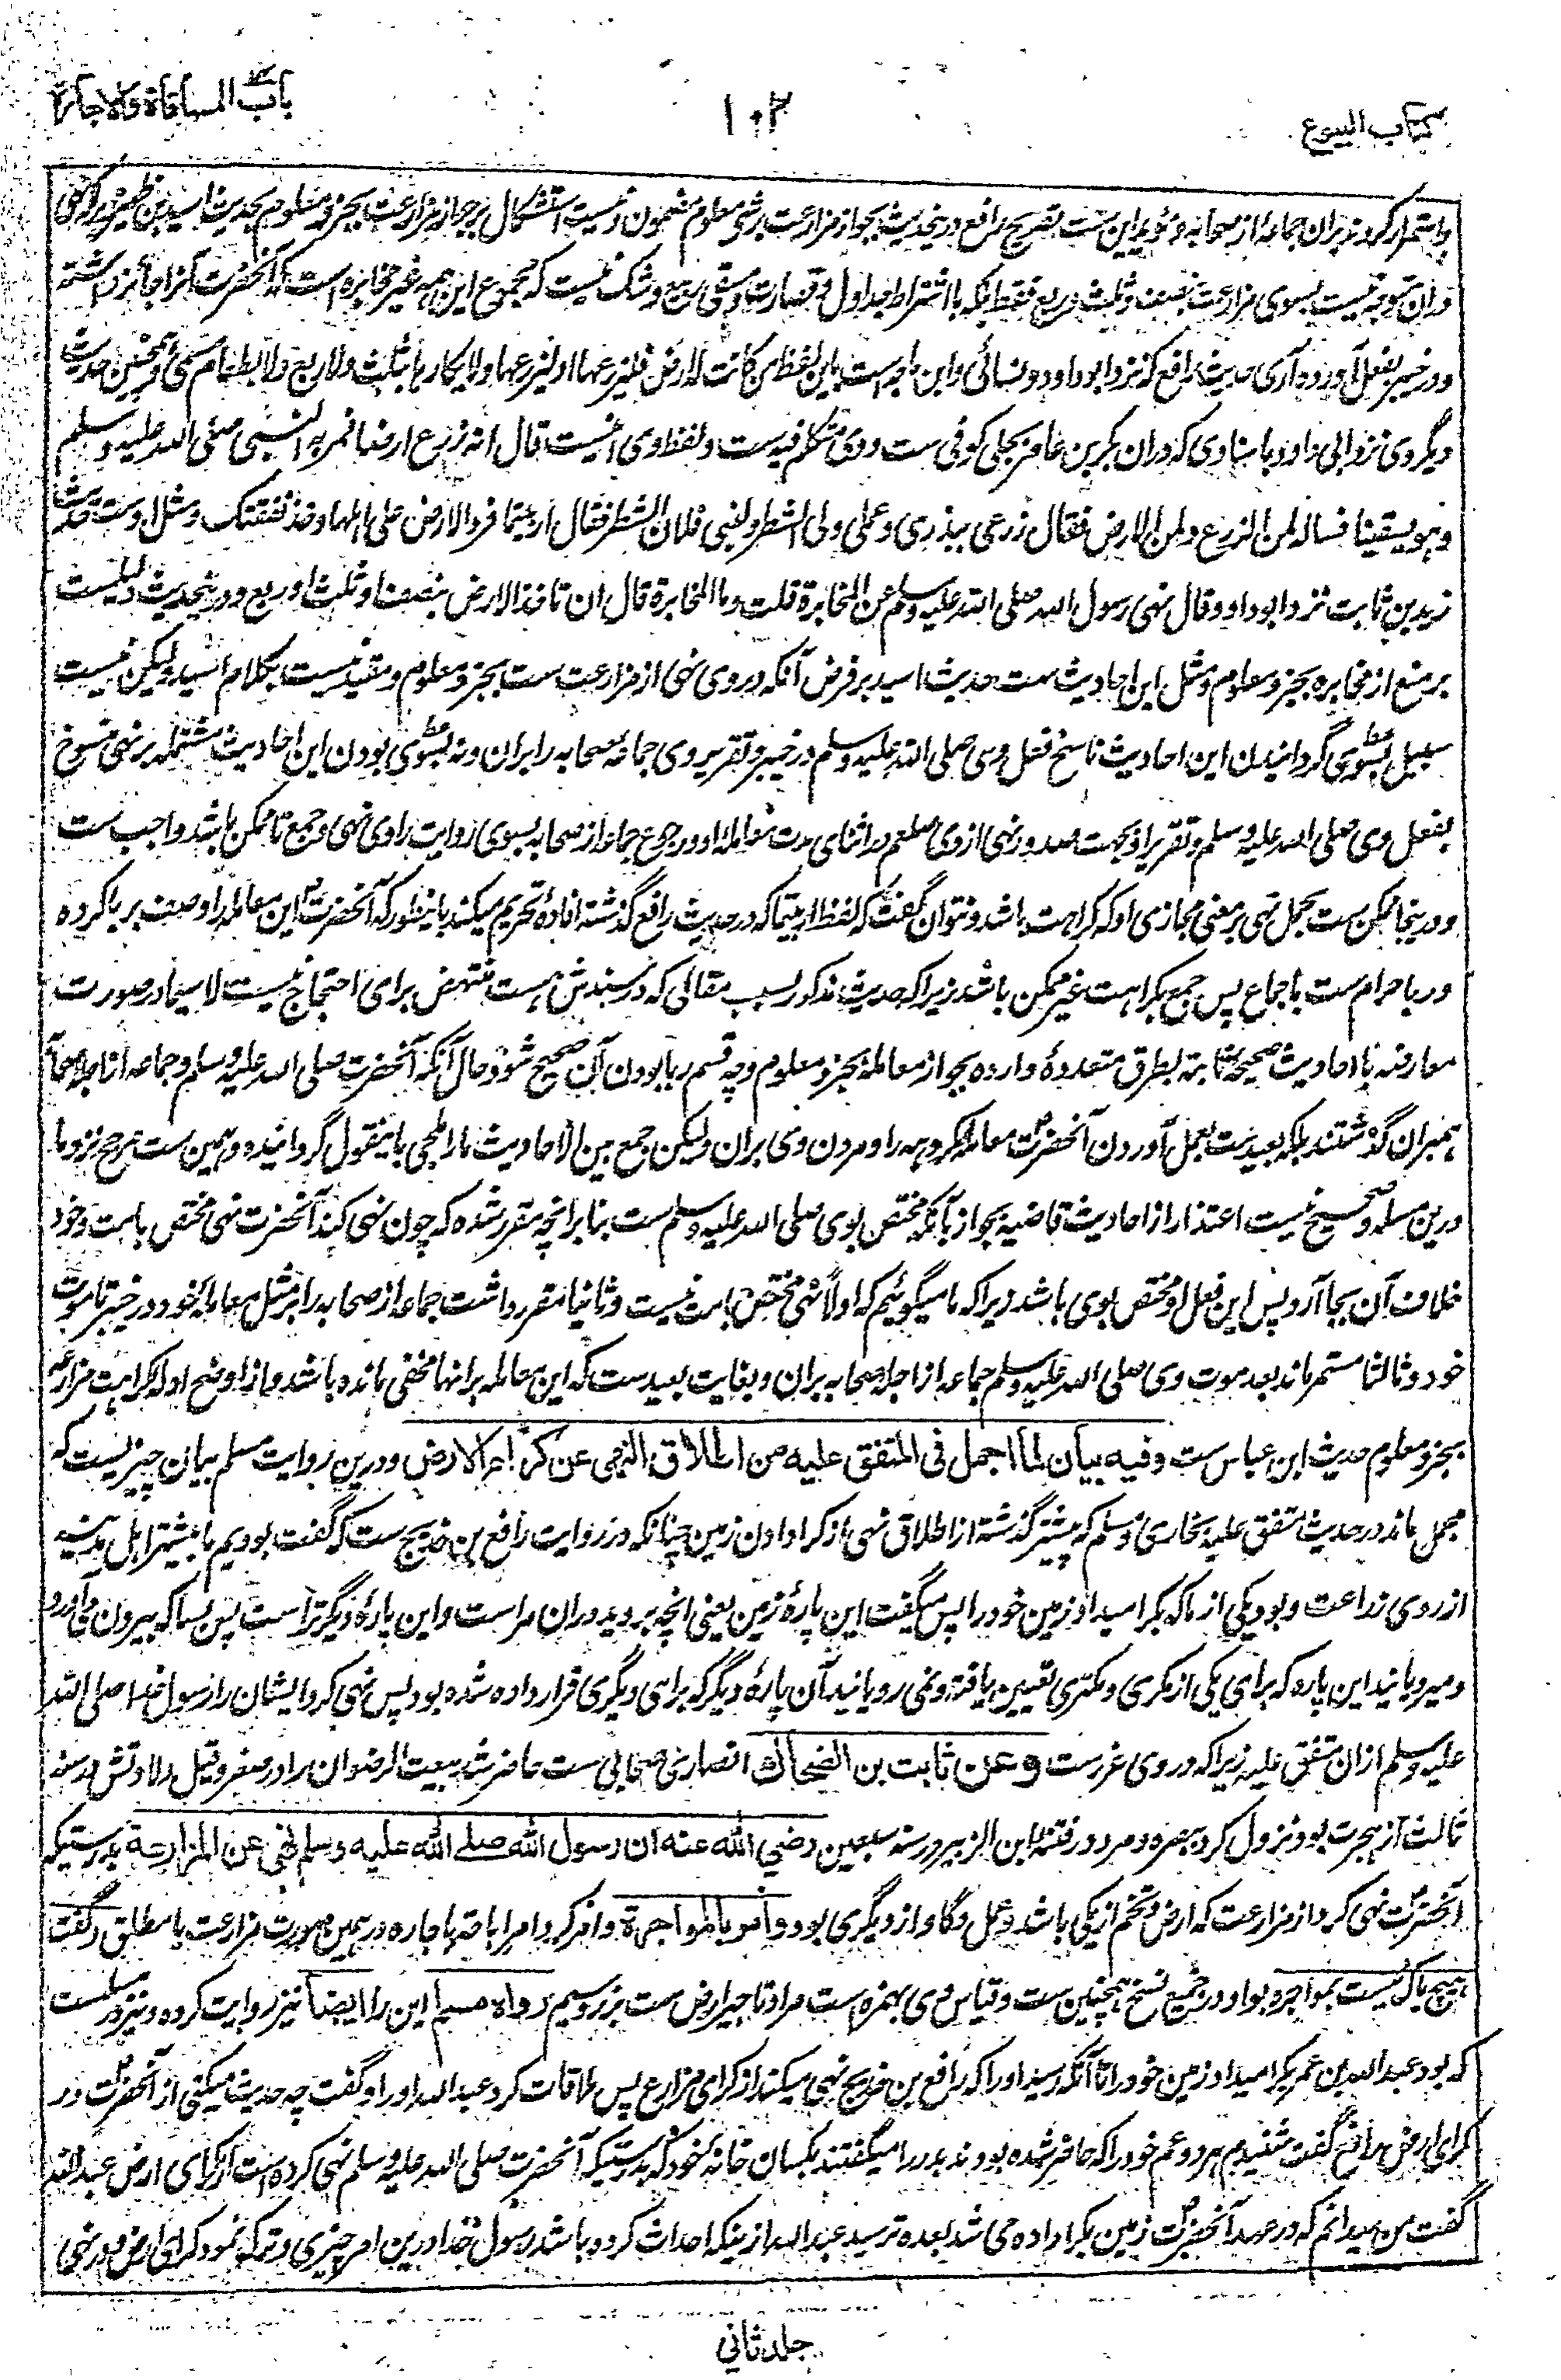 کتاب البیوع
۱۰۲
باب المساقاة والاجارة
واستمرار کردند بران جماعه از صحابه و مؤید این ست تصریح رافع درینحدیث بجواز مزارعت برشی معلوم مضمون و نیست استشکال بر جواز مزارعت بجزو معلوم بحدیث اسید بن ظهیر زیراکه نهی
دران متوجه نیست بسوی مزارعت بنصف و ثلث و ربع فقط بلکه با اشتراط جداول و قصارت و مسقی ربیع و شک نیست که مجموع این همه غیر مخابره است که آنحضرت آنرا جائز داشته
و در خیبر بفعل آورده آری حدیث رافع که نزد ابوداود و نسائی و ابن ماجه است باین لفظ من کانت له ارض فلیزرعها او لیزرعها ولا یکاریها بثلث ولا ربع ولا بطعام مسمی و همچنین حدیث
دیگر وی نزد ابی داود باسنادی که دران بکر بن عامر بجلی کوفی ست و وی متکلم فیه ست و لفظ وی اینست قال انه زرع ارضا فمر به النبی صلی الله علیه وسلم
وهو یسقیها فساله لمن الزرع ولمن الارض فقال زرعی ببذری وعملی ولی الشطر ولبنی فلان الشطر فقال اربیتما فرد الارض علی اهلها وخذ نفقتک و مثل اوست حدیث
زید بن ثابت نزد ابوداود قال نهی رسول الله صلی الله علیه وسلم عن المخابرة قلت وما المخابرة قال ان تاخذ الارض بنصف او ثلث او ربع و درینحدیث دلیلیست
بر منع از مخابره بجزو معلوم و مثل این احادیث ست حدیث اسید بر فرض آنکه در وی نهی از مزارعت ست بجزو معلوم و مقید نیست بکلام اسید ولیکن نیست
سبیل بسوی گردانیدن این احادیث ناسخ فعل وی صلی الله علیه وسلم در خیبر و تقریر وی جماعه صحابه را بران و نه بسوی بودن این احادیث مشتمله بر نهی منسوخ
بفعل وی صلی الله علیه وسلم و تقریر او بجهت صدور نهی از وی صلعم در اثنای مدت معامله او و رجوع جماعه از صحابه بسوی روایت راوی نهی و جمع تا ممکن باشد واجب ست
و درینجا ممکن ست بحمل نهی بر معنی مجازی او که کراهت باشد و نتوان گفت که لفظ اربیتما که در حدیث رافع گذشته افاده تحریم میکند باینطور که آنحضرت این معامله را وصف بربا کرده
و ربا حرام ست باجماع پس جمع بکراهت غیر ممکن باشد زیراکه حدیث مذکور بسبب مقالی که در سندش هست منتهض برای احتجاج نیست لا سیما در صورت
معارضه با احادیث صحیحه ثابته بطرق متعدده وارده بجواز معامله بجزو معلوم و چه قسم ربا بودن آن صحیح شود و حال آنکه آنحضرت صلی الله علیه وسلم و جماعه از اجله صحابه
همبران گذشتند بلکه بعیدست بعمل آوردن آنحضرت معامله مکروهه را و مردن وی بران ولیکن جمع بین الاحادیث ما را ملجی باینقول گردانیده و همین ست مرجح نزد ما
درین مسله و صحیح نیست اعتذار از احادیث قاضیه بجواز بآنکه مختص بوی صلی الله علیه وسلم ست بنا برانچه مقرر شده که چون نهی کند آنحضرت نهی مختص بامت و خود
خلاف آن بجا آرد پس این فعل او مختص بوی باشد زیراکه ما میگوئیم که اولاً نهی مختص بامت نیست و ثانیا مقرر داشت جماعه از صحابه را بر مثل معامله خود در خیبر تا موت
خود و ثالثا مستمر ماند بعد موت وی صلی الله علیه وسلم جماعه از اجله صحابه بران و بغایت بعید ست که این معامله بر انها مخفی مانده باشد و از اوضح ادله کراهت مزارعه
بجزو معلوم حدیث ابن عباس ست وفیه بیان لما اجمل فی المتفق علیه من اطلاق النهی عن کراء الارض و درین روایت مسلم بیان چیزیست که
مجمل ماند در حدیث متفق علیه بخاری و مسلم که پیشتر گذشته از اطلاق نهی از کرا دادن زمین چنانکه در روایت رافع بن خدیج ست که گفت بودیم ما بیشتر اهل مدینه
از روی زراعت و بود یکی از ما که بکرا میداد زمین خود را پس میگفت این پارهٔ زمین یعنی انچه بروید دران مراست و این پارهٔ دیگر تراست پس بسا که بیرون می آورد
و میرویانید این پاره که برای یکی از مکری و مکتری تعیین یافته و نمی رویانید آن پارهٔ دیگر که برای دیگری قرار داده شده بود پس نهی کرد ایشان را رسول خدا صلی الله
علیه وسلم ازان متفق علیه زیراکه در وی غررست وعن ثابت بن الضحاک انصاری صحابی ست حاضر شد بیعت الرضوان را در صغر و قیل ولادتش در سنه
ثالث از هجرت بود نزول کرد ببصره و مرد در فتنه ابن الزبیر در سنه سبعین رضی الله عنه ان رسول الله صلے الله علیه وسلم نهی عن المزارعة بدرستیکه
آنحضرت نهی کرد از مزارعت که ارض و تخم از یکی باشد و عمل و گاو از دیگری بود وامر بالمواجرة و امر کرد امر اباحه باجاره در همین صورت مزارعت یا مطلق و گفت
هیچ باک نیست بمواجره بواو در جمیع نسخ همچنین ست و قیاس وی بهمزه است مراد تاجیر ارض ست بزر و سیم رواه مسلم این را ایضا نیز روایت کرده و نیز در مسلمست
که بود عبدالله بن عمر بکرا میداد زمین خود را تا آنکه رسید او را که رافع بن خدیج نهی میکند از کرای مزارع پس ملاقات کرد عبدالله او را و گفت چه حدیث میکنی از آنحضرت در
کرای ارض رافع گفت شنیدم هر دو عم خود را که حاضر شده بودند بدر را میگفتند بکسان خانه خود که بدرستیکه آنحضرت صلی الله علیه وسلم نهی کرده است از کرای ارض عبدالله
گفت من میدانم که در عهد آنحضرت زمین بکرا داده می شد بعده ترسید عبدالله ازینکه احداث کرده باشد رسول خدا درین امر چیزی و ترک نمود کرای ارض و برخی
جلد ثانی